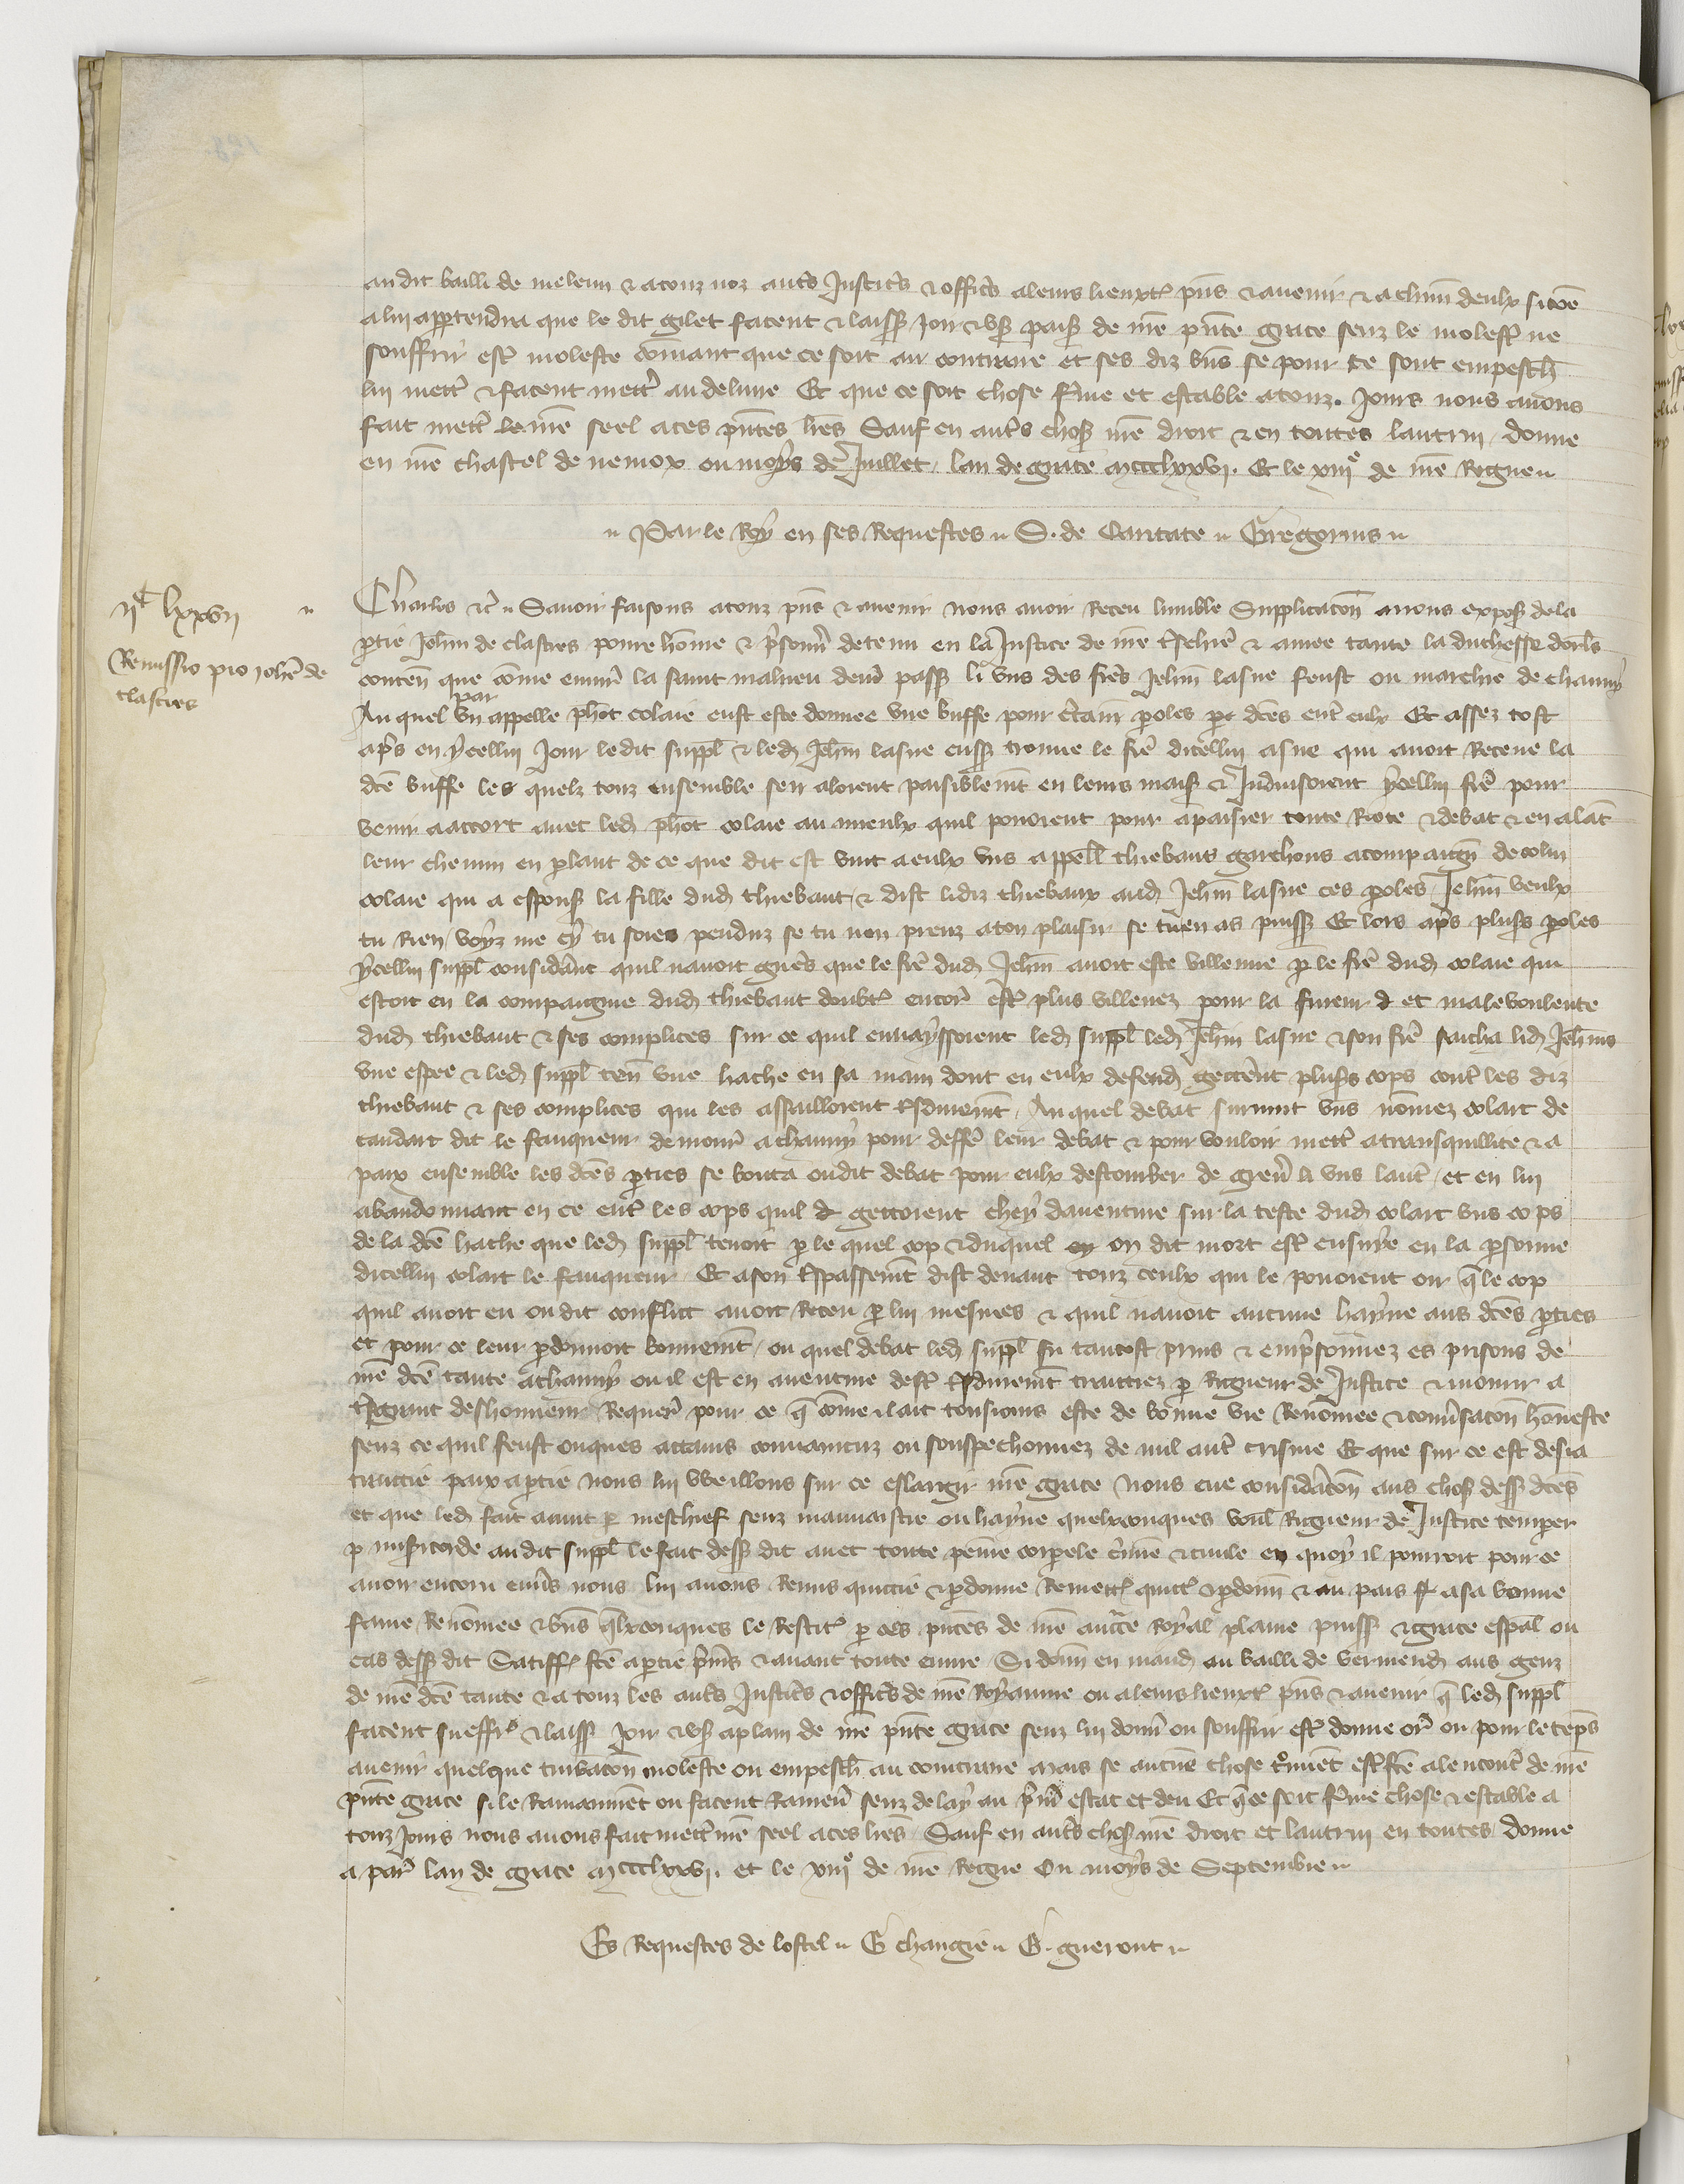 au dit bailli de meleun & a touz noz autrs Justicrs & officrs a leurs lieuxt pns & avenir & a chun deulx si cõe
a lui apptendra que le dit gilet facent & laissẽ Joir & usẽ paisẽ de nrẽ pnte grace senz le molestr ne
souffrir estr moleste cõmant que ce soit au contraire et ses diz bns se pour ce sont empesch
lui mettr & facent mettr au delivre Et que ce soit chose ferme et estable a touz . Jours nous avons
fait mettr le nrẽ seel a ces pntes lrẽs Sauf en autrs chosẽ nrẽ droit & en toutes lautrui donne
en nrẽ chastel de nemox ou moys de Juillet lan de grace mccclxxvi . Et le xiiie de nrẽ Regne
Par le Roy en ses Requestes S . de Caritate Gregorius
iic lxxvii
Remissio pro Johẽ de
clastres
Charles etc Savoir faisons a touz pns & avenir nous avoir Receu lumble Supplicacõn a nous exposẽ de la
ptie Jehm de clastres povre hõme & prsonnr detenu en la Justice de nrẽ trschierẽ & amee tante la duchesse dorls
contẽn que cõme environ la saint mahieu derr passẽ li uns des frẽs Jehm lasne feust ou marchie de chauny
Au quel par un appelle phot colaie eust este donnee une buffe pour crtain poles p dcẽs entr eulx Et assez tost
aprs en ycellui Jour ledit suppl & led Jehm lasne eussẽ trouve le frẽ dicellui asne qui avoit Receue la
dcẽ buffe les quelz touz ensemble sen aloient paisiblemt en leurs maisẽ & Induisoient ycellui frẽ pour
venir a accort avec led phot colaie au mieulx quil povoient pour apaisier toute Riote & debat & en alãt
leur chemin en plant de ce que dit est vint a eulx uns appelle thiebaut garchons acompaign de colin
colaie qui a espousẽ la fille dud thiebaut & dist lidiz thiebaux aud Jehm lasne ces poles Jehm veulx
tu Rien voyz me cy tu soies penduz se tu non prenz a ton plaisir se tu en as puissẽ Et lors aprs plusrs poles
ycellui suppl considrant quil navoit gueres que le frẽ dud Jehm avoit este villenne p le frẽ dud colaie qui
estoit en la compaignie dud thiebaut doubtt encorr estr plus villenez pour la fureur d et malevoulente
dud thiebaut & ses complices sur ce quil envayssoient led suppl led Jehm lasne & son frẽ saicha lid Jehms
une espee & led suppl tenr une hache en sa main dont en eulx defend getterent plusrs cops contr les diz
thiebaut & ses complices qui les assailloient trsdurement Au quel debat survint uns nõmez colart de
caudart dit le fauqueur demourr a chauny pour deffre leur debat & pour vouloir mettr a transquillite & a
paix ensemble les dcẽs pties se bouta oudit debat pour eulx destourber de grevr li uns lautr et en lui
abandonnant en ce entr les cops quil d gettoient chey daventure sur la teste dud colart uns cops
de la dcẽ hache que led suppl tenoit p le quel cop & duquel ey on dit mort estr ensuye en la psonne
dicellui colart le fauqueur Et a son trspassement dist devant touz ceulx qui le povoient oir q le cop
quil avoit eu ou dit conflict avoit Receu p lui mesmes & quil navoit aucune hayne aus dcẽs pties
et pour ce leur pdonnoit bonnemt ou quel debat led suppl fu tantost prins & emprisonnez es prisons de
nrẽ dcẽ tante a chauny ou il est en aventure destr trsdurement traictiez p Rigueur de Justice & mourir a
trsgrant deshonneur Requerr pour ce q cõme il ait tousjours este de bonne vie Renõmee & conversacõn honeste
senz ce quil feust onques attains convaincuz ou souspechonnez de nul autr crisme Et que sur ce est desia
traictie paix a ptie nous lui vveillons sur ce eslargir nrẽ grace Nous eue considracõn aus chosẽ dessẽ dcẽs
et que led fait avint p meschief senz mauvaistie ou hayne quelxconques voul Rigueur de Justice temper
p misricorde au dit suppl le fait dessẽ dit avec toute peine corpele crimẽ & civile en quoy il pourroit pour ce
avoir encouru envrs nous lui avons Remis quictie & pdonne Remettt quictt & pdonn & au pais & a sa bonne
fame Renõmee & bns qlxconques le Restitt p ces pntes de nrẽ auctrte Royal plaine puissẽ & grace espal ou
cas dessẽ dit Satiffẽ fcẽ a ptie prmrs & avant toute euvre Si donn en mand au bailli de vermend aus genz
de nrẽ dcẽ tante & a touz les autrs Justicrs & officrs de nrẽ Royaume ou a leurs lieuxt pns & avenir q led suppl
facent sueffrt & laissẽ joir & usẽ a plain de nrẽ pnte grace senz lui donnr ou souffrir estr donne orr ou pour le teps
avenir quelque turbacõn moleste ou empesch au contraire mais se aucune chose trouvẽt estr fcẽ a lencontr de nrẽ
pnte grace si le Ramainnent ou facent Ramenr senz delay au prmr estat et deu Et q ce soit ferme chose & estable a
touz Jours nous avons fait mettr nrẽ seel a ces lrẽs Sauf en autrs chosẽ nrẽ droit et lautrui en toutes donne
a parr lan de grace mccclxxvi . et le xiiie de nrẽ Regne Ou moys de Septembre
Es Requestes de lostel G changie G . gueront